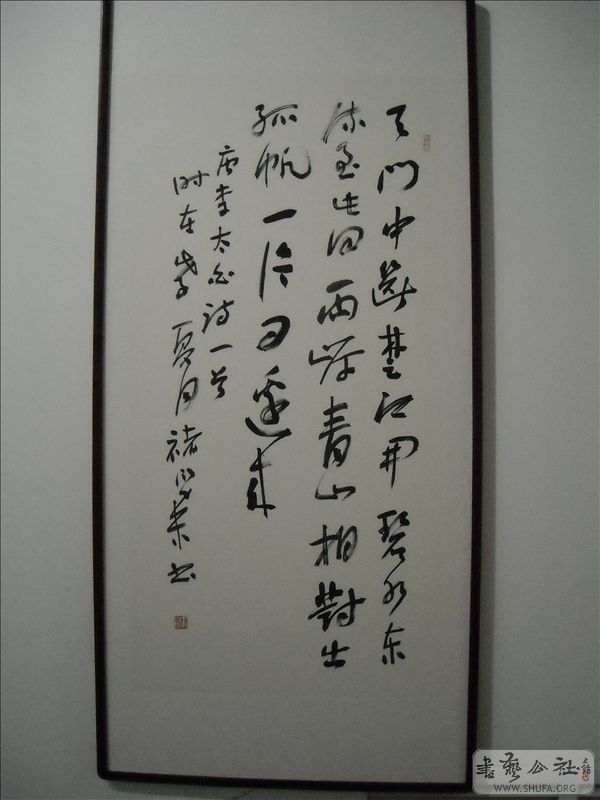 天門中斷楚江開碧水东
流至此回兩岸青山相對出
孤帆一片日邊来
唐李太白诗一首
时在夏月褚书
書藝公社
WWW.SHUFA.ORG